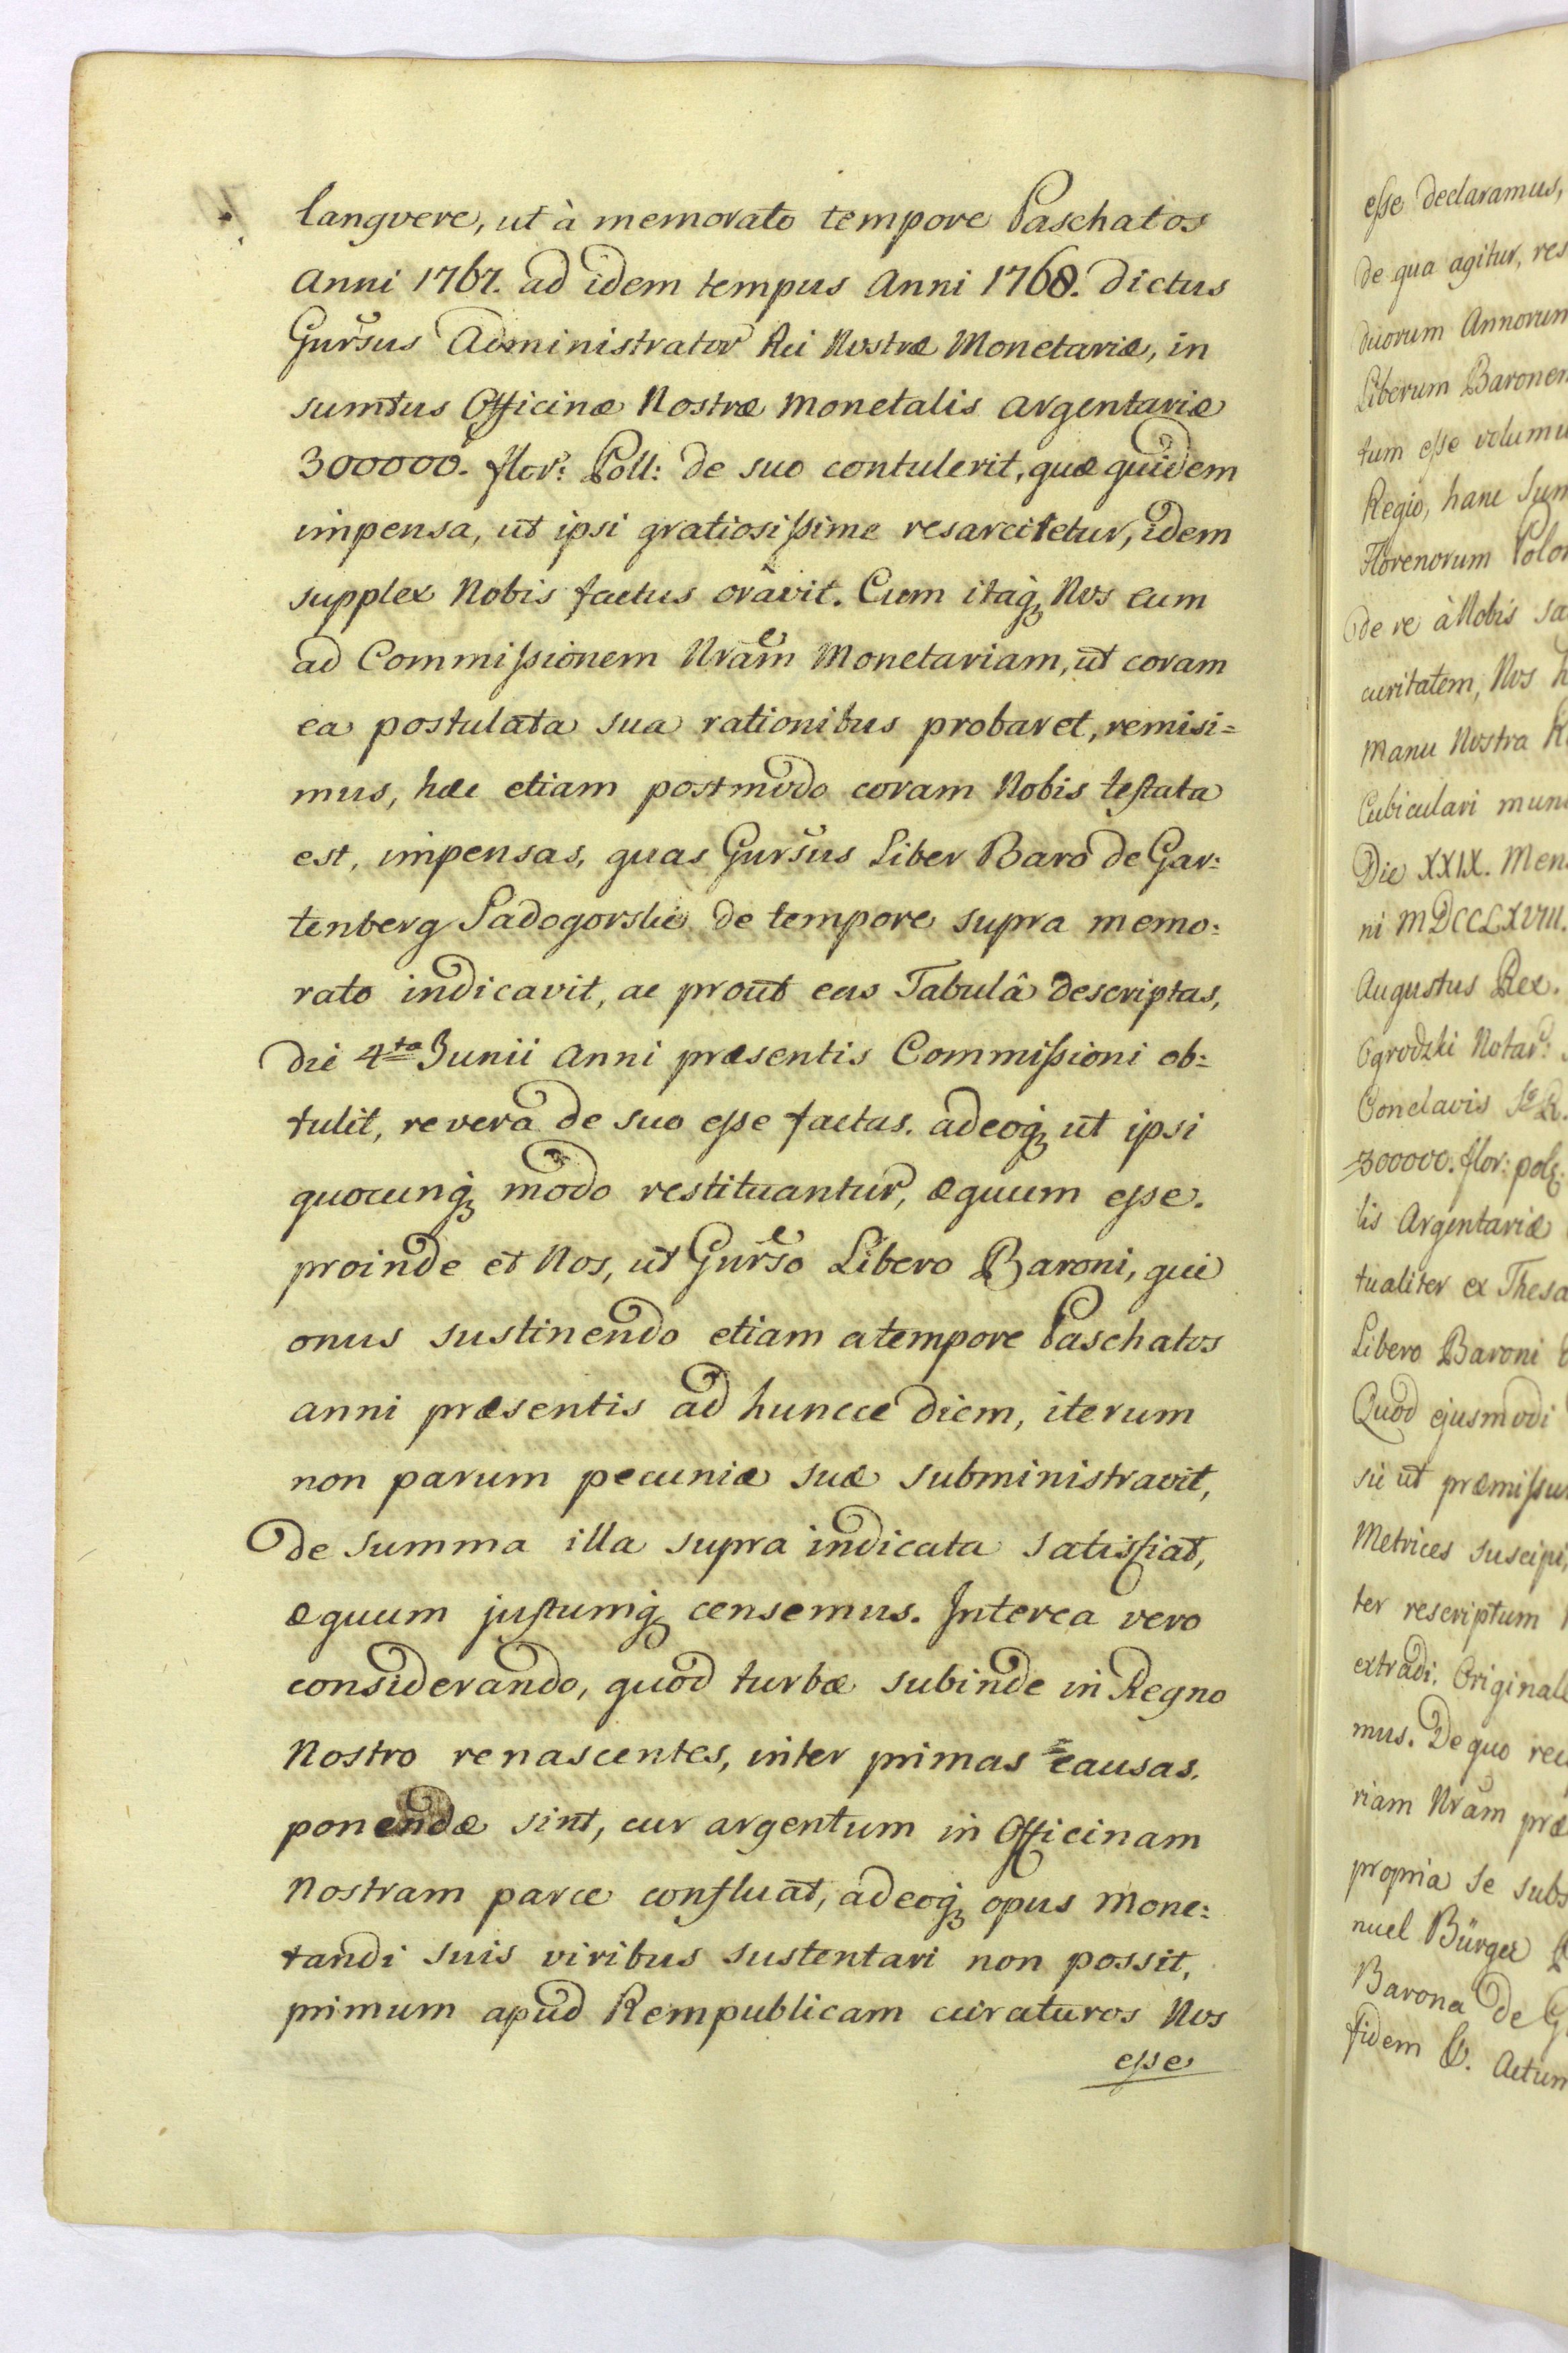 langvere, ut à memorato tempore Paschatos
Anni 1767. ad idem tempus Anni 1768. dictus
Gursus Administrator Rei Nostræ Monetariæ, in
sumtus Officinæ Nostræ Monetalis argentariæ
300000. flor: Poll: de suo contulerit, quæ quidem
impensa, ut ipsi gratiosissime resarciretur, idem
supplex Nobis factus oravit. Cum itaq; Nos eum
ad Commissionem Nram Monetariam, ut coram
ea postulata sua rationibus probaret, remisi=
mus, hæc etiam postmodo coram Nobis testata
est, impensas, quas Gursus Liber Baro de Gar:
tenberg Sadogorski de tempore supra memo:
rato indicavit, ac prout eas Tabulâ descriptas,
die 4ta Junii Anni præsentis Commissioni ob=
tulit, revera de suo esse factas. adeoq; ut ipsi
quocunq; modo restituantur, æquum esse.
proinde et Nos, ut Gurso Libero Baroni, qui
onus sustinendo etiam a tempore Paschatos
anni præsentis ad huncce diem, iterum
non parum pecuniæ suæ subministravit,
de summa illa supra indicata satisfiat,
æquum justumq; censemus. Interea vero
considerando, quod turbæ subinde in Regno
Nostro renascentes, inter primas causas.
ponendæ sint, cur argentum in Officinam
Nostram parce confluat, adeoq; opus Mone:
tandi suis viribus sustentari non possit,
primum apud Rempublicam curaturos Nos
esse
esse declaramus,
de qua agitur, res
duorum Annorum
Liberum Baronem
tum esse volumu
Regio, hanc Sum
Florenorum Polon
de re à Nobis sa
curitatem, Nos h
Manu Nostra
Cubiculari mun
Die XXIX. Men
ni MDCCLXVIII.
Augustus Rex.
Ogrodzki Notar:
Conclavis
300000. flor: pol:
lis Argentariæ
tualiter ex Thesa
Libero Baroni
Quod ejusmodi
sic ut præmissu
Metrices suscipi
ter rescriptum
extradi. Original
mus. De quo rec
riam Nram præ
propria se subs
nuel Bürger
Barona de G
fidem &. Actum